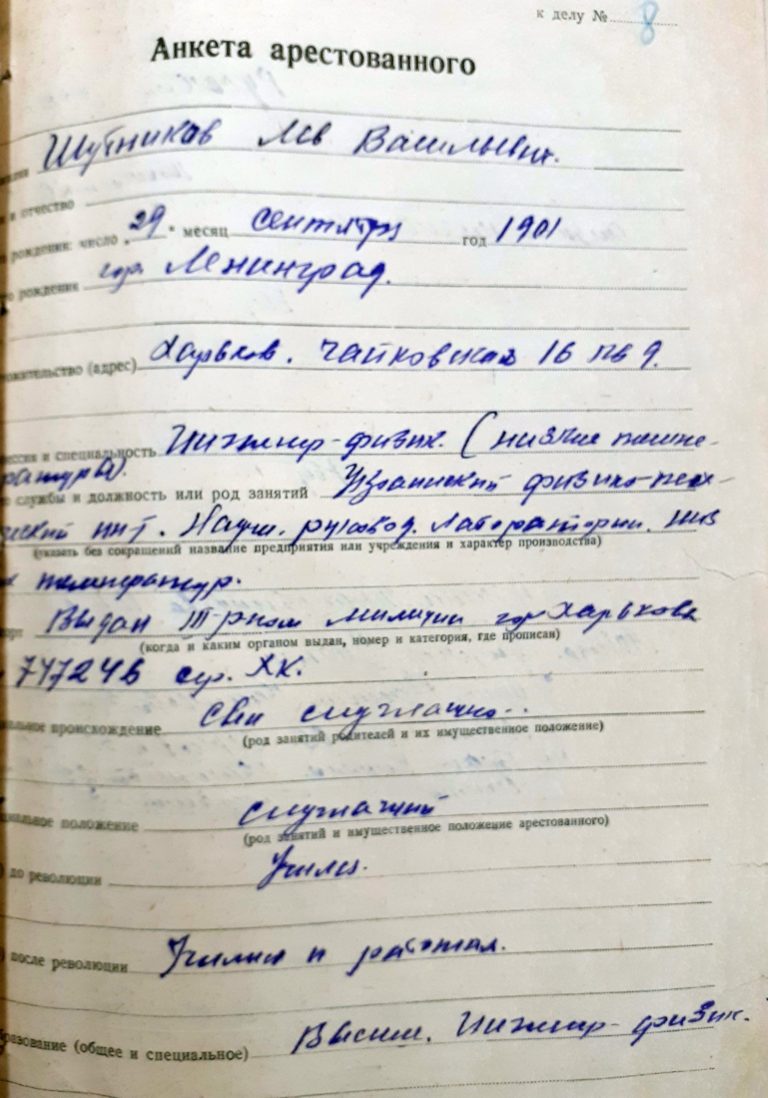 к делу № 8
Анкета арестованного
Шубников Лев Васильевич.
и отчество
рождения: число „29" месяц сентября год 1901
рождения гор. Ленинград.
жительство (адрес) Харьков. Чайковская 16 кв 9.
ессия и специальность Инженер-физик. (низкие темпе-
ратуры).
службы и должность или род занятий Украинский физико-тех-
ческий инт. Научн. руковод. Лаборатории. низ
(указать без сокращений название предприятия или учреждения и характер производства)
х температур.
порт Выдан III-рном милиции гор Харькова
(когда и каким органом выдан, номер и категория, где прописан)
747246 сер. ХК.
альное происхождение Сын служащего.
(род занятий родителей и их имущественное положение)
циальное положение служащий
(род занятий и имущественное положение арестованного)
) до революции Учился.
) после революции Учился и работал.
бразование (общее и специальное) Высшее. Инженер-физик.